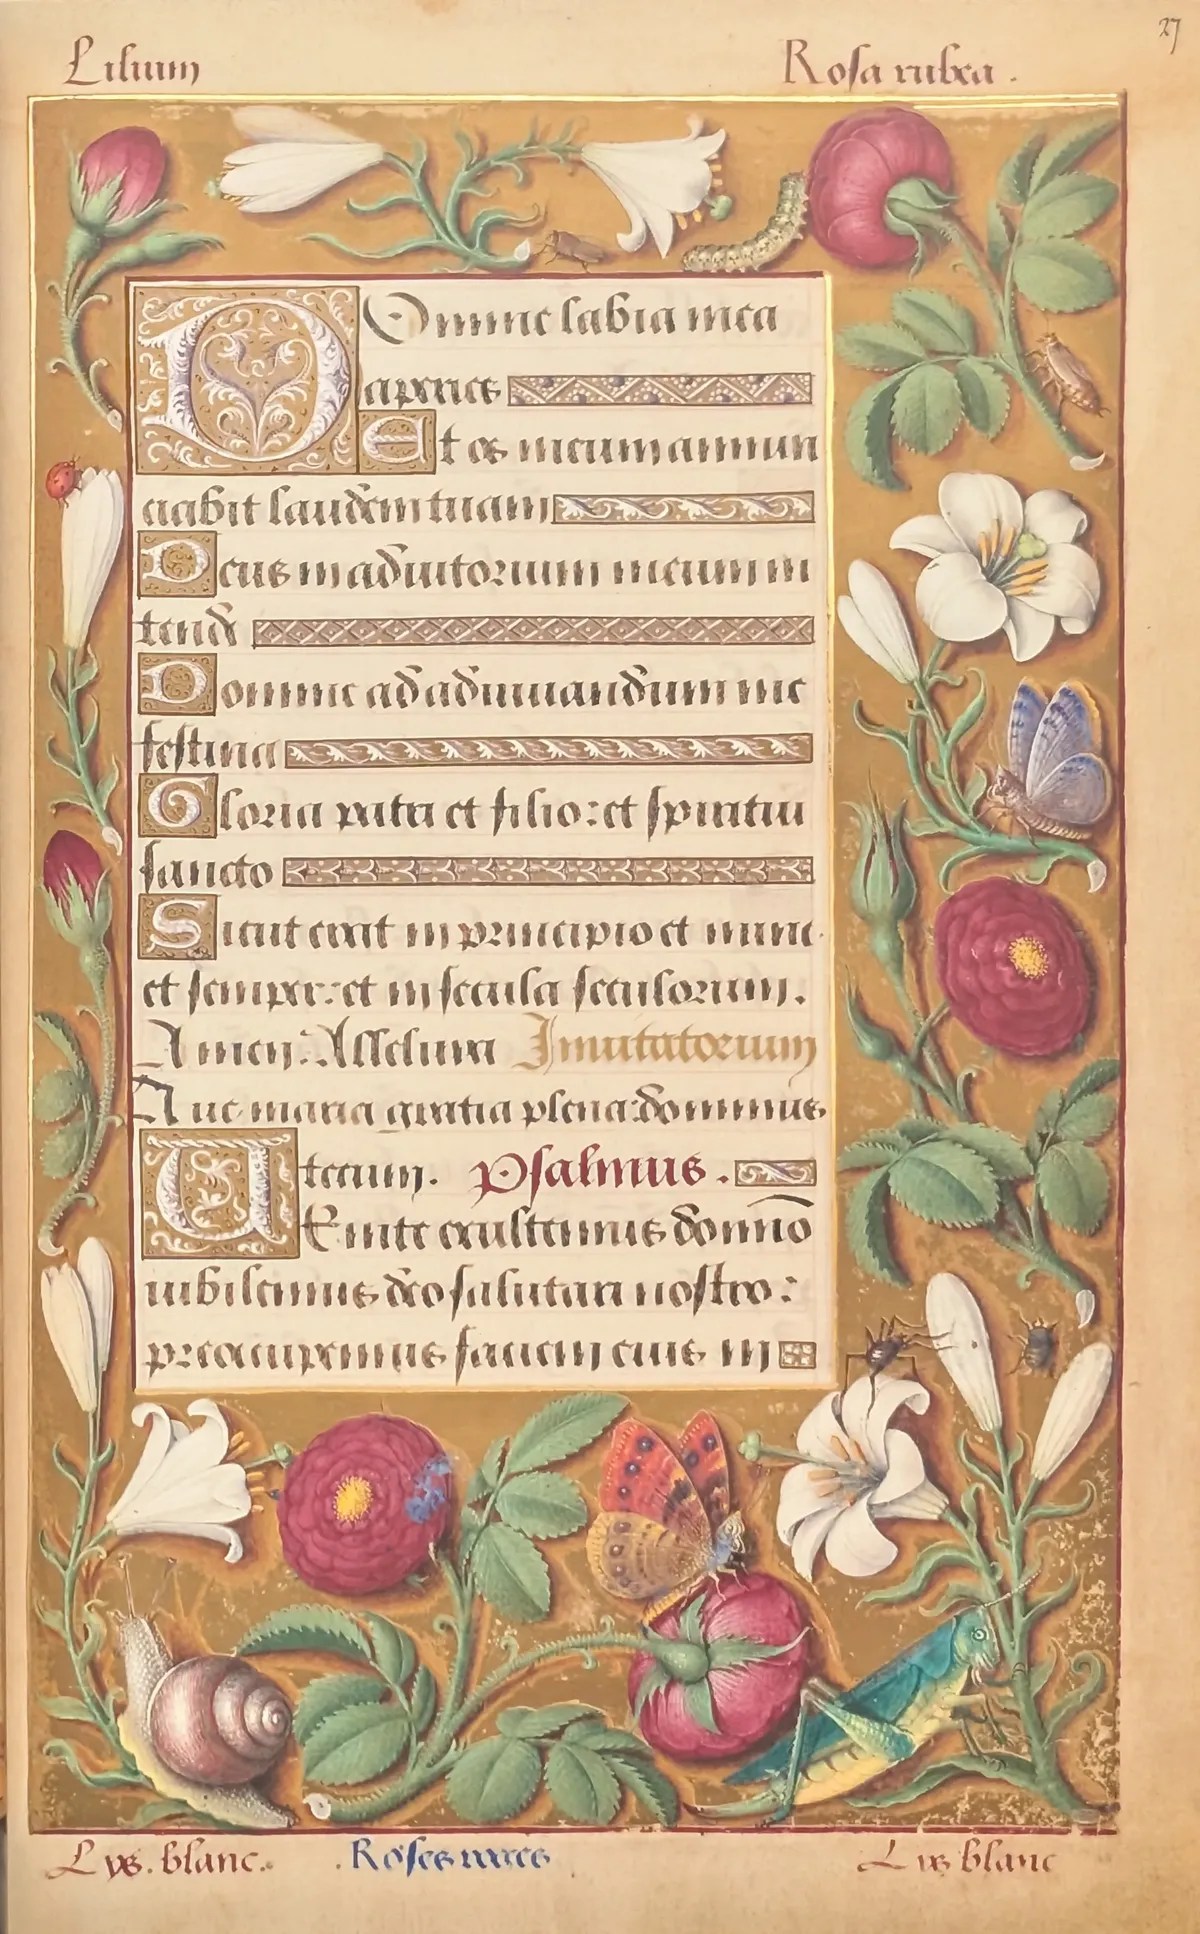 27
Lilium
Rosa rubea .
Domine labia mea
aperies
Et os meum annun
ciabit laudem tuam
Deus in adiutorium meum in
tende
Domine ad adiuuandum me
festina
Gloria patri et filio: et spiritui
sancto
Sicut erat in principio et nunc
et semper: et in secula seculorum.
Amen. Alleluia Inuitatorium
Aue maria gratia plena: dominus
tecum. Psalmus.
UEnite exultemus domĩo
iubilemus deo salutari nostro:
preocupemus faciem eius in
Lys. blanc.
. Roses
Lis blanc